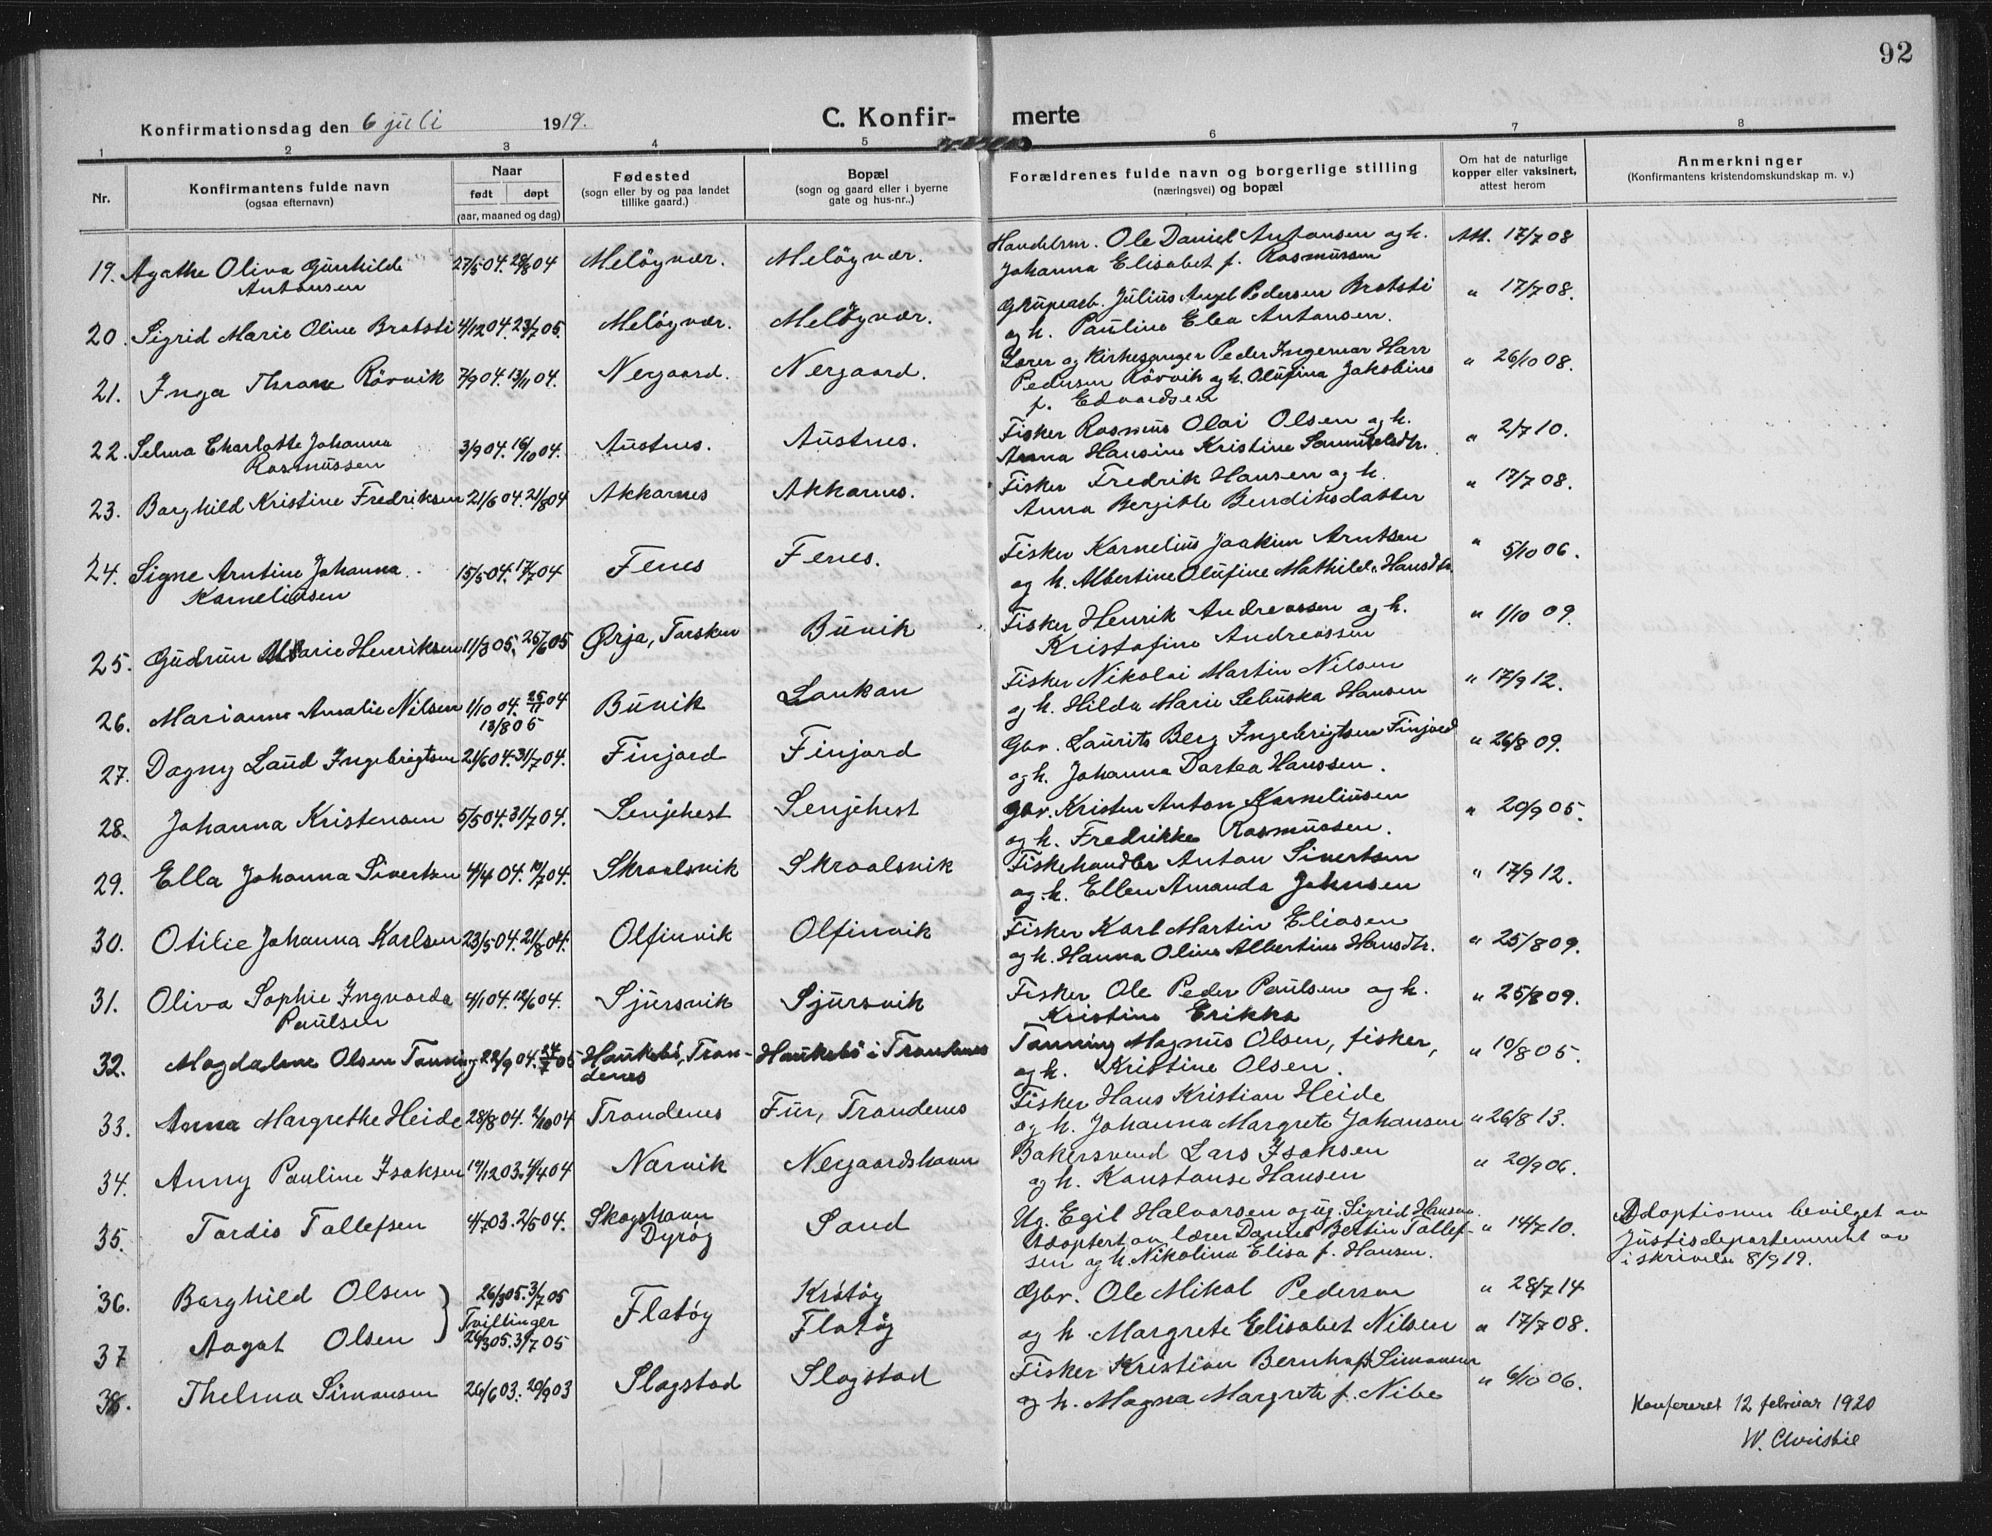 92
Konfirmationsdag den 6 juli 1919. C. Konfir- merte
1 2 3 4 5 6 7 8
Nr. Konfirmantens fulde navn (ogsaa efternavn) Naar født døpt (aar, maaned og dag) Fødested (sogn eller by og paa landet tillike gaard.) Bopæl (sogn og gaard eller i byerne gate og hus-nr..) Forældrenes fulde navn og borgerlige stilling (næringsvei) og bopæl Om hat de naturlige kopper eller vaksinert, attest herom Anmerkninger (Konfirmantens kristendomskundskap m. v.)
19. Agathe Oliva Gunhilde Antonsen 27/5 04. 28/8 04 Meløyvær. Meløyvær. Handelsm. Ole Daniel Antonsen og h. Johanna Elisabet f. Rasmussen Att. 17/7 08
20. Sigrid Marie Oline Bratsti 4/12 04. 23/7 05. Meløyvær. Meløyvær. Julius Angel Pedersen Bratsti og h. Pauline Elea Antonsen. " 17/7 08.
21. Inga Thrane Rövik 7/9 04. 13/11 04. Nergaard. Nergaard. Lærer og Kirkesanger Peder Ingemar Harr Pedersen Rövik og h. Olufina Jakobine f. Edvardsen " 26/10 08.
22. Selma Charlotte Johanna Rasmussen 3/9 04. 16/10 04. Austnes. Austnes. Fisker Rasmus Olai Olsen og h. Anna Hansine Kristine Samuelsdtr. " 2/7 10.
23. Borghild Kristine Fredriksen 21/6 04. 21/8 04 Akkarnes Akkarnes. Fisker Fredrik Hansen og h. Anna Bergitte Bendiksdatter " 17/7 08.
24. Signe Arntine Johanna Korneliusen 15/5 04. 17/7 04 Fenes Fenes. Fisker Kornelius Joakim Arntsen og h. Albertine Olufine Mathilde Hansdtr. " 5/10 06.
25. Gudrun Marie Henriksen 11/3 05. 25/6 05 Ørja, Torsken Buvik Fisker Henrik Andreassen og h. Kristofine Andreassen " 1/10 09.
26. Marianne Amalie Nilsen 1/10 04. 25/11 04 13/8 05 Buvik Lankan Fisker Nikolai Martin Nilsen og h. Hilda Marie Hansen " 17/9 12.
27. Dagny Laud Ingebrigtsen 21/6 04. 31/7 04. Finjord Finjord Gbr. Laurits Berg Ingebrigtsen Finjord og h. Johanna Dortea Hanssen. " 26/8 09.
28. Johanna Kristensen 5/5 04. 31/7 04. Senjehest Senjehest Gbr. Kristen Anton Korneliusen og h. Fredrikke Rasmussen. " 20/9 05.
29. Ella Johanna Sivertsen 4/4 04. 10/7 04. Skroalsvik Skroalsvik Fiskehandler Anton Sivertsen og h. Ellen Amanda Johnsen " 17/9 12.
30. Otilie Johanna Karlsen 23/5 04. 21/8 04. Olfinvik Olfinvik Fisker Karl Martin Eliasen og h. Hanna Oline Albertine Hansdtr. " 25/8 09.
31. Oliva Sophie Ingvarda Paulsen 4/1 04. 12/6 04. Sjursvik Sjursvik Fisker Ole Peder Paulsen og h. Kristine Erikka " 25/8 09.
32. Magdalene Olsen Tanning 22/9 04. 24/7 05 Haukebö, Tron-denes Haukebö i Trondenes Tanning Magnus Olsen, fisker, og h. Kristine Olsen. " 10/8 05.
33. Anna Margrethe Heide 28/8 04. 2/10 04 Trondenes Fur, Trondenes Fisker Hans Kristian Heide og h. Johanna Margrete Johansen " 26/8 13.
34. Anny Pauline Isaksen 19/12 03. 4/4 04 Narvik Nergaardshavn Bakersvend Lars Isaksen og h. Konstanse Hansen " 20/9 06.
35. Tordis Tollefsen 4/7 03. 2/5 04. Skogshavn Dyrøy Sand Ug. Egil Halvorsen og ug. Sigrid Hansen. Adoptert av lærer Daniel Bertin Tollef-sen og h. Nikolina Elisa f. Hansen. " 14/7 10. Adoptionen bevilget av Justisdepartementet av i skrivelse 8/9 19.
36. Borghild Olsen 26/3 05. 3/7 05 Tvillinger Flatöy Krötöy Gbr. Ole Mikal Pedersen " 28/7 14
37 Aagot Olsen 26/3 05. 3/7 05 Flatöy og h. Margrete Elisabet Nilsen " 17/7 08.
38. Thelma Simonsen 26/6 03. 20/9 03 Slagstad Slagstad Fisker Kristian Bernhof Simonsen og h. Magna Margrete f. Nibe " 6/10 06.
Konfereret 12 februar 1920
W. Christie